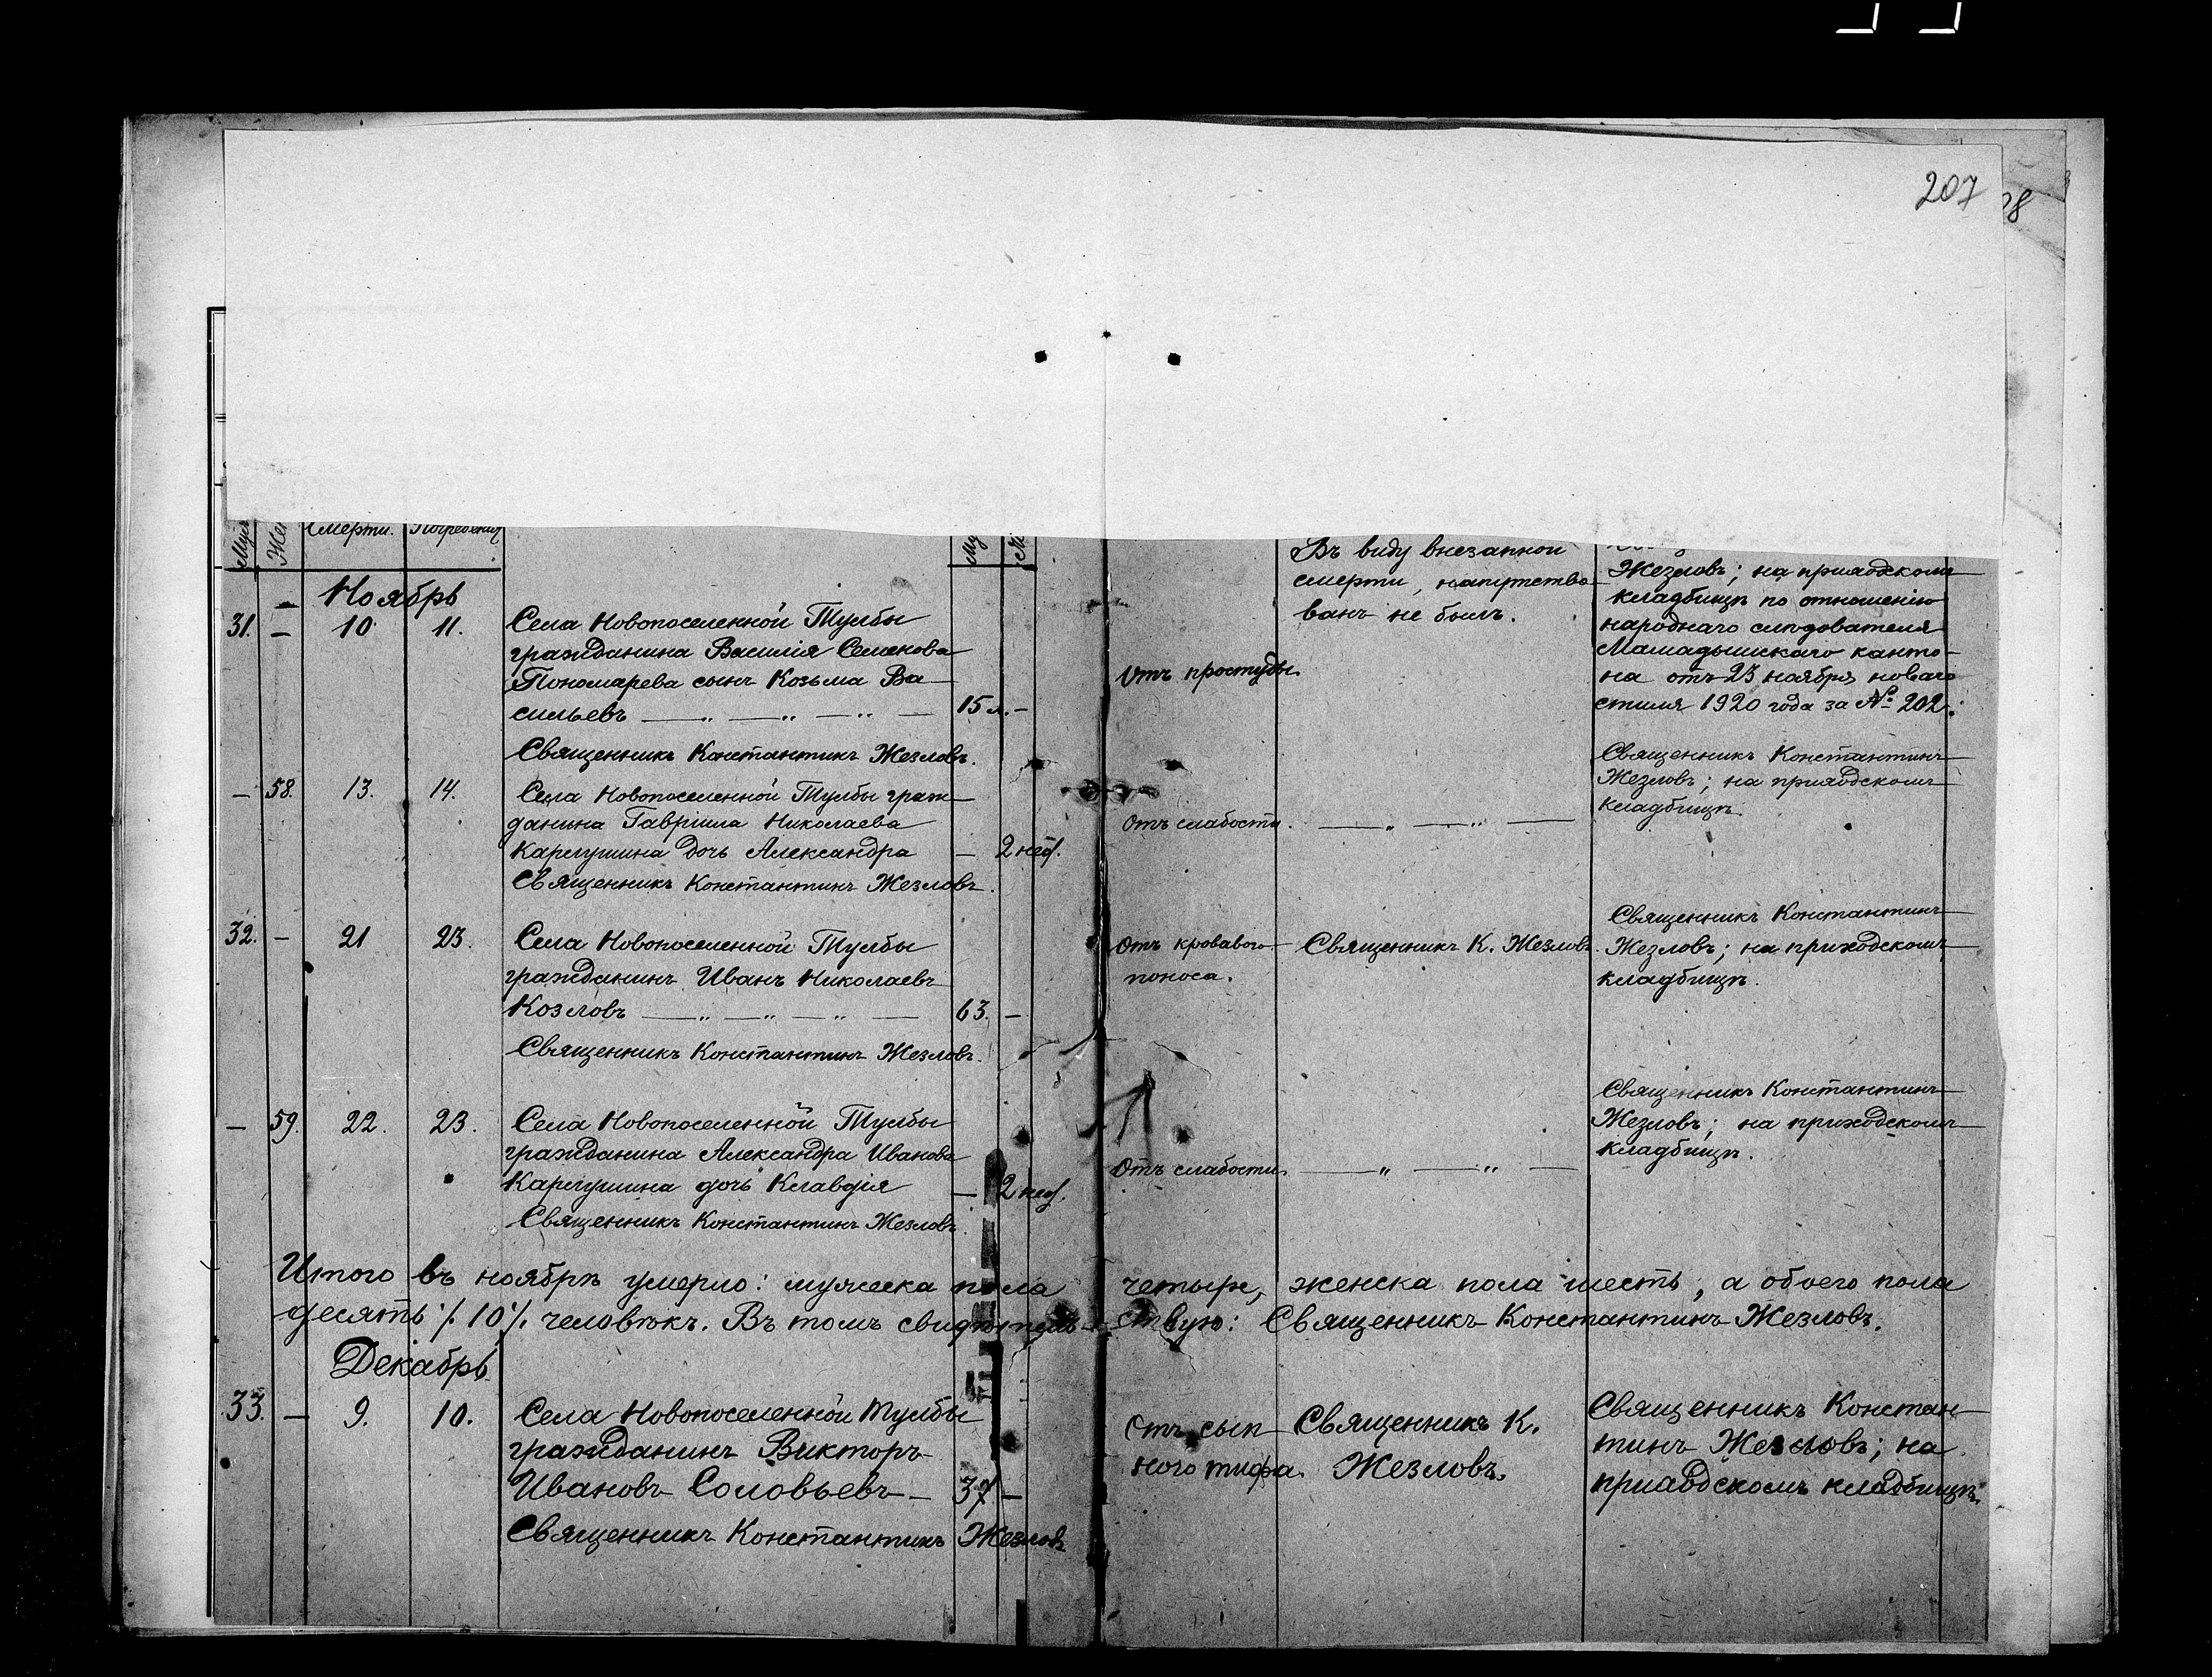 207
Смерти. Погребения
Ноябрь
31. — 10 11.
Села Новопоселенной Тулбы
гражданина Василія Семенова
Пономарева сынъ Козьма Ва-
сильевъ — „ — „ — „ — 15 л. —
Священникъ Константинъ Жезловъ.
— 58. 13. 14.
Села Новопоселенной Тулбы граж-
данина Гавріила Николаева
Карпушина дочь Александра — 2 нед.
Священникъ Константинъ Жезловъ.
32. — 21 23.
Села Новопоселенной Тулбы
гражданинъ Иванъ Николаевъ
Козловъ — „ — „ — „ — 63. —
Священникъ Константинъ Жезловъ.
— 59. 22. 23.
Села Новопоселенной Тулбы
гражданина Александра Иванова
Карпушина дочь Клавдія — 2 нед.
Священникъ Константинъ Жезловъ.
Итого въ ноябрѣ умерло: мужеска пола
десять /.10/. человѣкъ. Въ томъ свидѣтель-
Декабрь
33. — 9. 10.
Села Новопоселенной Тулбы
гражданинъ Викторъ
Ивановъ Соловьевъ — 37 —
Священникъ Константинъ Жезловъ
Въ виду внезапной
смерти, напутство-
ванъ не былъ.
Жезловъ; на приходскомъ
кладбищѣ по отношенію
народнаго слѣдователя
Мамадышскаго канто-
на отъ 23 ноября новаго
стиля 1920 года за № 202.
Отъ простуды.
Священникъ Константинъ
Жезловъ; на приходскомъ
кладбищѣ.
Отъ слабости. — „ — „ —
Отъ кроваваго
поноса.
Священникъ К. Жезловъ.
Священникъ Константинъ
Жезловъ; на приходскомъ
кладбищѣ.
Отъ слабости. — „ — „ —
Священникъ Константинъ
Жезловъ; на приходскомъ
кладбищѣ.
четыре, женска пола шесть, а обоего пола
ствую: Священникъ Константинъ Жезловъ.
Отъ сып-
ного тифа.
Священникъ К.
Жезловъ.
Священникъ Констан-
тинъ Жезловъ; на
приходскомъ кладбищѣ.